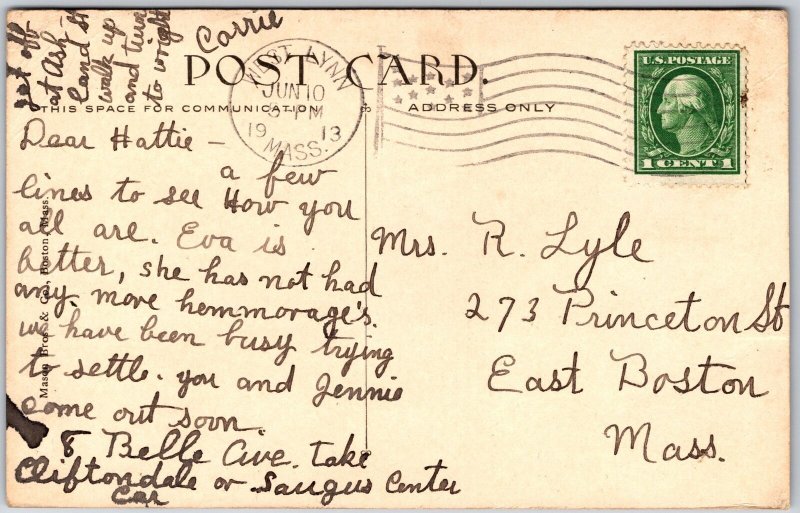 get off
at Ash-
land st
walk up
and turn
to wright
Carrie
WEST LYNN
JUN 10
5-PM
19 13
MASS.
POST CARD.
THIS SPACE FOR COMMUNICATION
ADDRESS ONLY
U.S. POSTAGE
1 CENT 1
Dear Hattie -
a few
lines to see How you
all are. Eva is
better, she has not had
any more hemmorage's.
we have been busy trying
to settle. you and Jennie
come out soon.
8 Belle Ave. take
Cliftondale or Saugus Center
Car
Mrs. R. Lyle
273 Princeton St
East Boston
Mass.
Mason Bros. & Co., Boston, Mass.